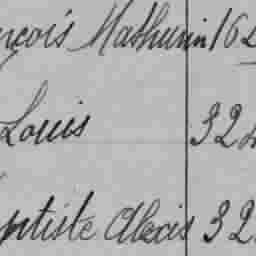 nçois Mathurin 16
Louis 32
ptiste Alexis 32